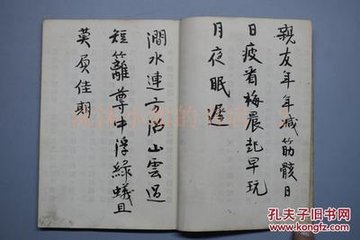 親友年年減筋骸日
日疲看梅晨起早玩
月夜眠遲
澗水連方沼山雲過
短籬尊中浮綠蟻且
莫負佳期
孔夫子旧书网